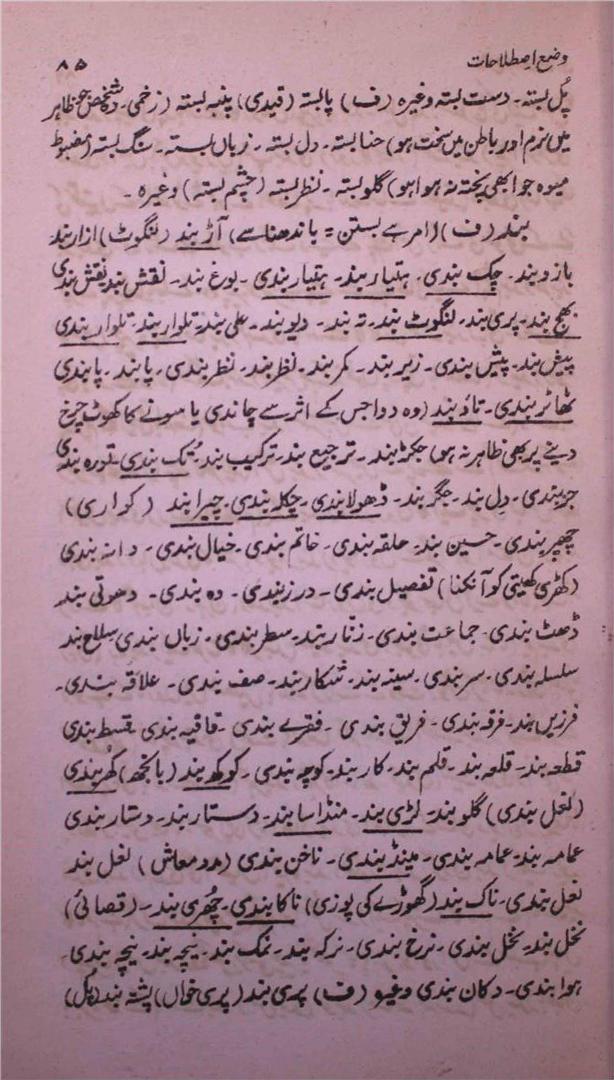 وضع اصطلاحات ۸۵
پُل بستہ۔ دست بستہ وغیرہ (ف) پابستہ (قیدی) پنبہ بستہ (زخمی۔ وہ شخص جو ظاہر
میں نرم اور باطن میں سخت ہو) حنا بستہ۔ دل بستہ۔ زباں بستہ۔ سنگ بستہ (مضبوط
میوہ جو ابھی پختہ نہ ہوا ہو) گلو بستہ۔ نظر بستہ (چشم بستہ) وغیرہ۔
بند (ف) (امر ہے بستن = باندھنا سے) آڑ بند (لنگوٹ) ازار بند
بازو بند۔ چک بندی۔ ہتیار بند۔ ہتیار بندی۔ بوغ بند۔ نقش بند نقش بندی
بھیج بند۔ پری بند۔ لنگوٹ بند۔ تہ بند۔ دیو بند۔ علی بند۔ تلوار بند۔ تلوار بندی
پیش بند۔ پیش بندی۔ زیر بند۔ کمر بند۔ نظر بند۔ نظر بندی۔ پابند۔ پابندی
ٹھاٹر بندی۔ تاؤ بند (وہ دوا جس کے اثر سے چاندی یا سونے کا کھوٹ چرخ
دینے پر بھی ظاہر نہ ہو) جکڑ بند۔ ترجیع بند۔ ترکیب بند۔ تک بندی۔ تورہ بندی
جز بندی۔ دِل بند۔ جگر بند۔ ڈھولا بندی۔ چکلہ بندی۔ چیرا بند (کواری)
چھپر بندی۔ حسین بند۔ حلقہ بندی۔ خاتم بندی۔ خیال بندی۔ دانہ بندی
(کھڑی کھیتی کو آنکنا) تفصیل بندی۔ درز بندی۔ دہ بندی۔ دھوتی بند
ڈھٹ بندی۔ جماعت بندی۔ زنّار بند۔ سطر بندی۔ زباں بندی سلاح بند
سلسلہ بندی۔ سر بندی۔ سینہ بند۔ شکار بند۔ صف بندی۔ علاقہ بندی۔
فرزیں بند۔ فرقہ بندی۔ فریق بندی۔ فقرے بندی۔ قافیہ بندی قسط بندی
قطعہ بند۔ قلعہ بند۔ قلم بند۔ کار بند۔ کوچہ بندی۔ کوکھ بند (بانجھ) کھُر بندی
(نعل بندی) گلو بند۔ لڑی بند۔ منڈاسا بند۔ دستار بند۔ دستار بندی
عمامہ بند۔ عمامہ بندی۔ مینڈ بندی۔ ناخن بندی (مدد معاش) نعل بند
نعل بندی۔ ناک بند (گھوڑے کی پوزی) ناکا بندی۔ چھُری بند۔ (قصائی)
نخل بند۔ نخل بندی۔ نرخ بندی۔ نرکہ بند۔ نمک بند۔ نیچہ بند۔ نیچہ بندی۔
ہوا بندی۔ دکان بندی وغیرہ (ف) پری بند (پری خواں) پشتہ بند (پُل)